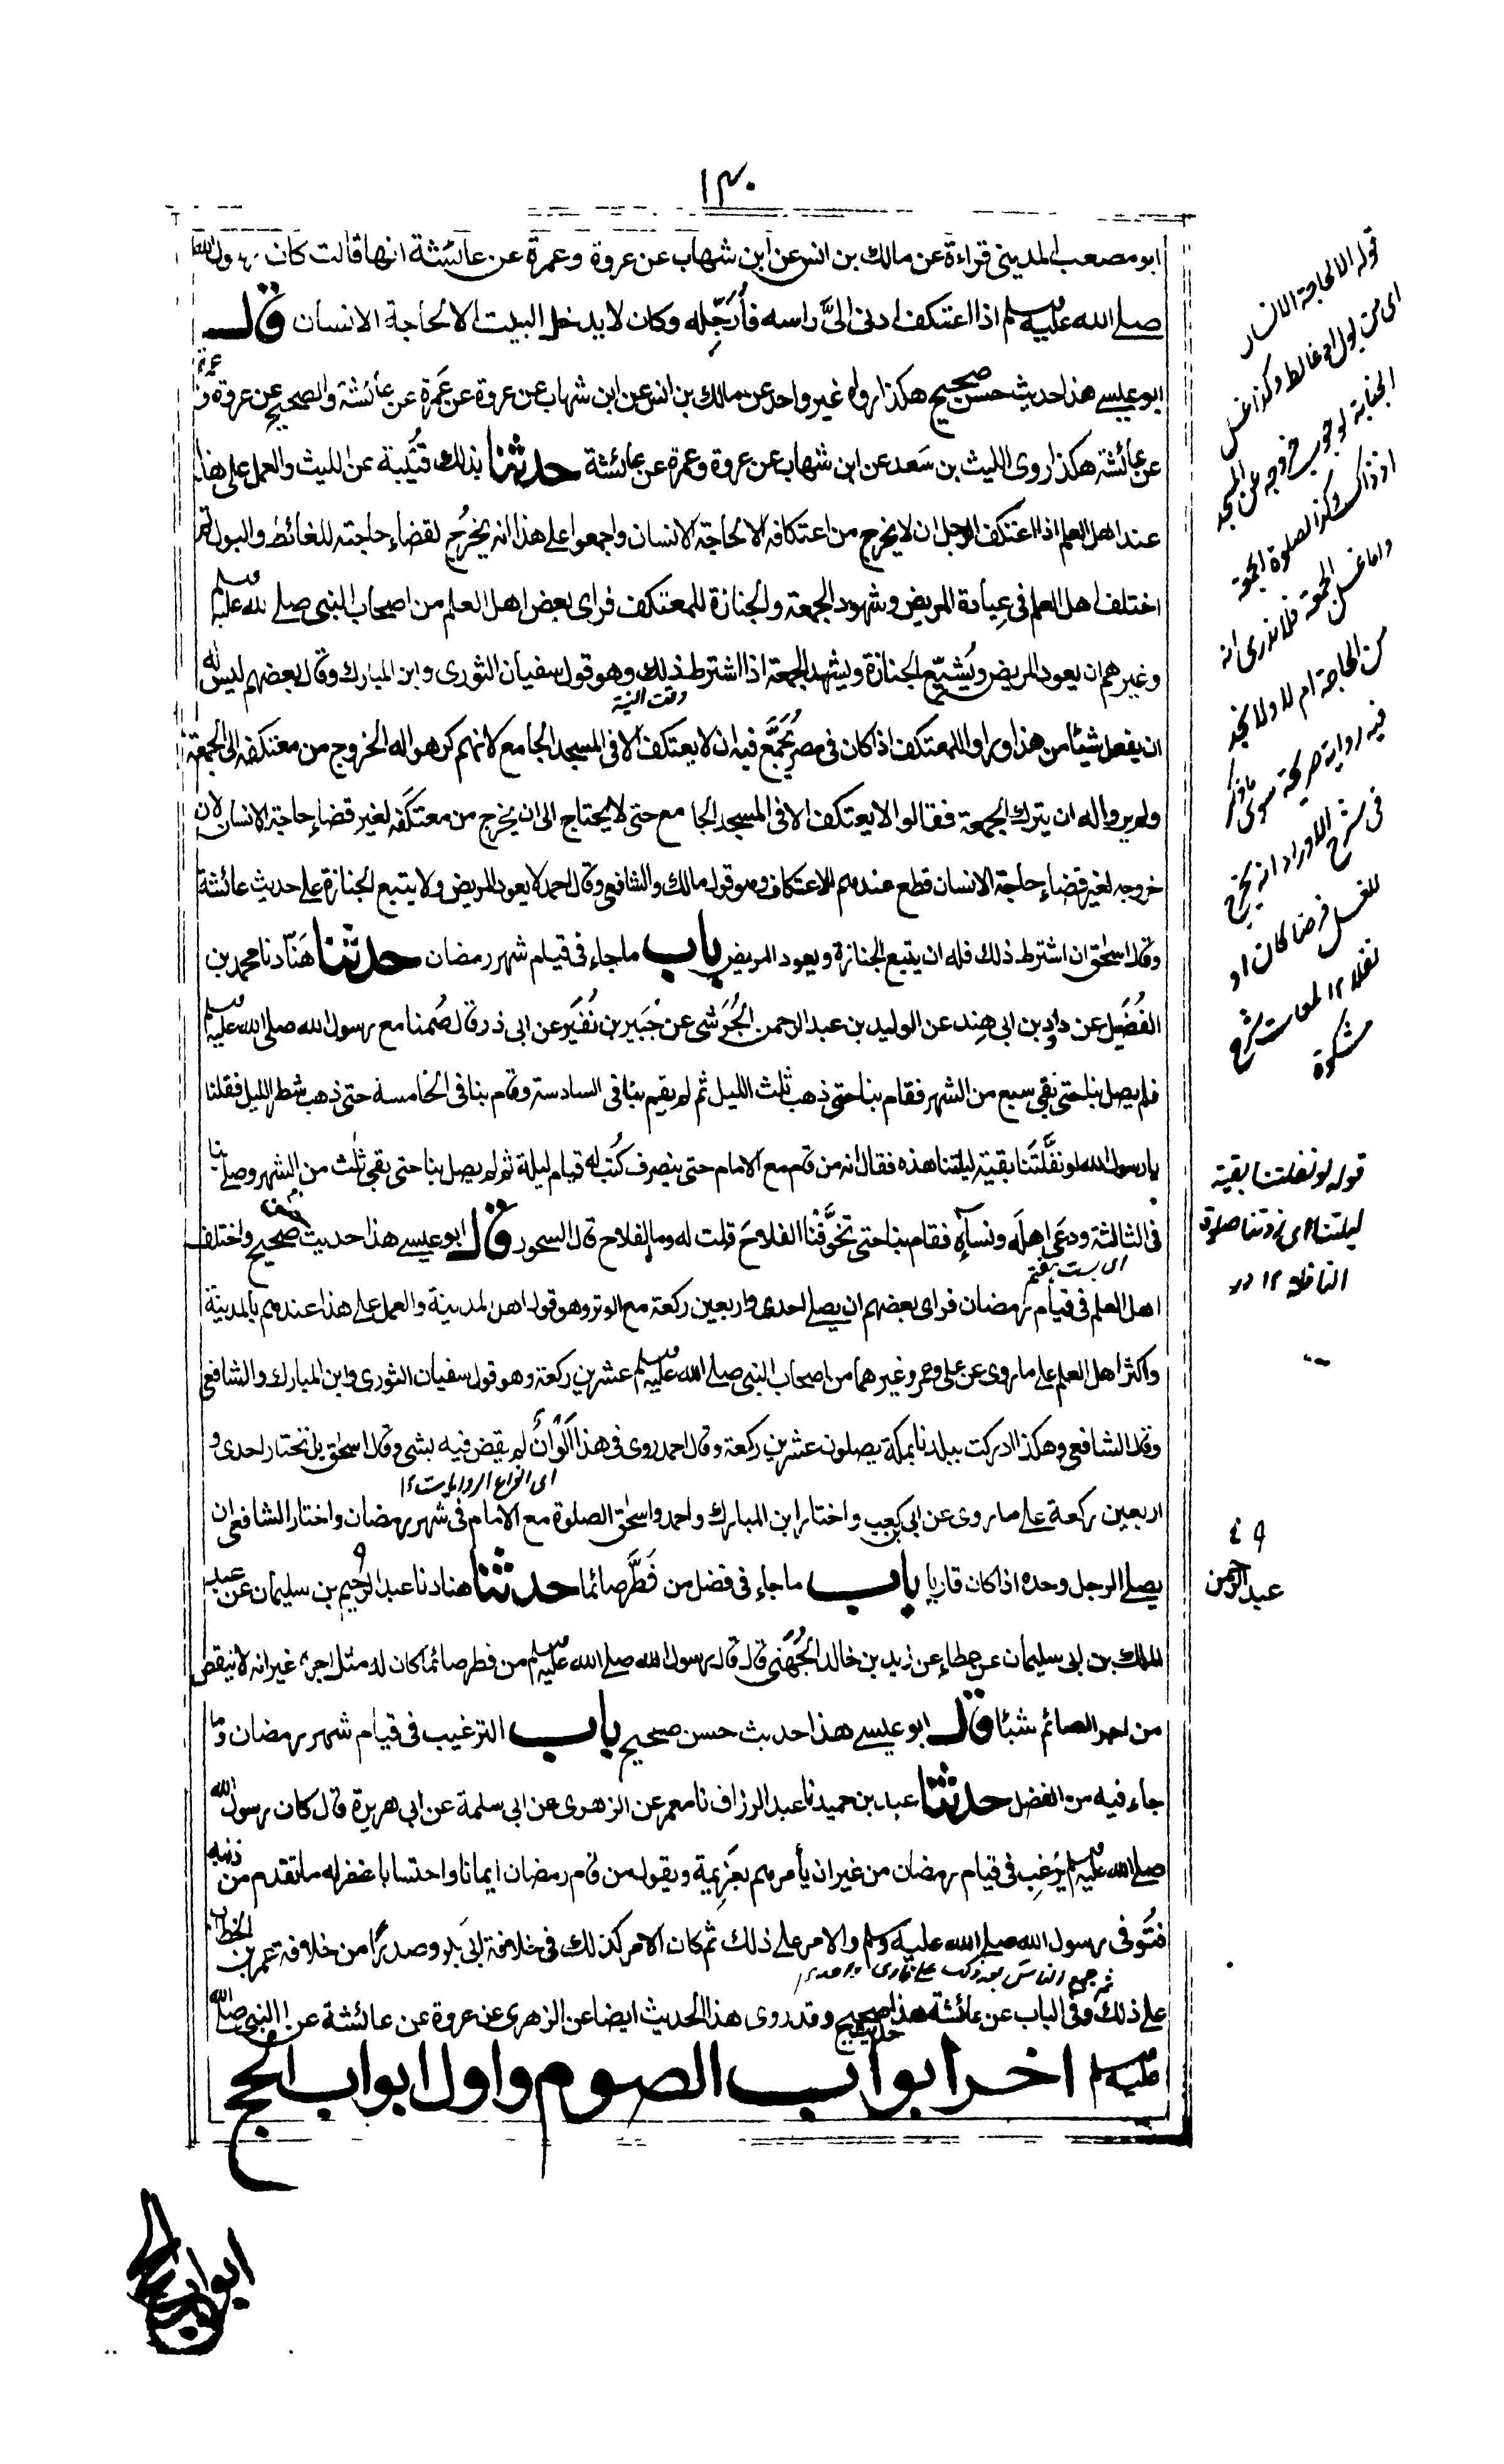 ١٣٠
ابو مصعب المديني قراءة عن مالك بن انس عن ابن شهاب عن عروة وعمرة عن عائشة انها قالت كان رسول الله
صلے الله عليه وسلم اذا اعتكف ادنى الىَّ راسه فأُرَجِّله وكان لا يدخل البيت الا لحاجة الانسان قال
ابو عيسے هذا حديث حسن صحيح هكذا رواه غير واحد عن مالك بن انس عن ابن شهاب عن عروة عن عَمرة عن عائشة والصحيح عن عروة وعمرة
عن عائشة هكذا روى الليث بن سَعد عن ابن شهاب عن عروة وعمرة عن عائشة حدثنا بذلك قُتَيبة عن الليث والعمل على هذا
عند اهل العلم اذا اعتكف الرجل ان لا يخرج من اعتكافه الا لحاجة الانسان واجمعوا على هذا انه يَخرُج لقضاء حاجته للغائط والبول ثم
اختلف اهل العلم فى عِيادة المريض وشهود الجمعة والجنازة للمعتكف فراى بعض اهل العلم من اصحاب النبى صلے الله عليه وسلم
وغيرهم ان يعود المريض ويُشيّع الجنازة ويشهد الجمعة اذا اشترط ذلك وهو قول سفيان الثورى وابن المبارك وقال بعضهم ليس له
وقت النية
ان يفعل شيئا من هذا وراوا للمعتكف اذا كان فى مصر يُجَمَّع فيه ان لا يعتكف الا فى المسجد الجامع لانهم كرهوا له الخروج من معتكفه الى الجمعة
ولم يروا له ان يترك الجمعة فقالوا لا يعتكف الا فى المسجد الجامع حتى لا يحتاج الى ان يخرج من معتكَفه لغير قضاء حاجة الانسان لان
خروجه لغير قضاء حاجة الانسان قطع عندهم للاعتكاف وهو قول مالك والشافعى وقال احمد لا يعود المريض ولا يتبع الجنازة على حديث عائشة
وقال اسحٰق ان اشترط ذلك فله ان يتبع الجنازة ويعود المريض باب ما جاء فى قيام شهر رمضان حدثنا هَنّاد نا محمد بن
الفُضَيل عن داود بن ابى هِند عن الوليد بن عبد الرحمن الجُرَشى عن جُبَير بن نُفَير عن ابى ذر قال صُمنا مع رسول الله صلے الله عليه وسلم
فلم يصل بنا حتى بقى سبع من الشهر فقام بنا حتى ذهب ثلث الليل ثم لم يقم بنا فى السادسة وقام بنا فى الخامسة حتى ذهب شطر الليل فقلنا
يا رسول الله لو نفَّلتَنا بقية ليلتنا هذه فقال انه من قام مع الامام حتى ينصرف كُتب له قيام ليلة ثم لم يصل بنا حتى بقى ثلٰث من الشهر وصلے بنا
فى الثالثة ودعى اهله ونساءه فقام بنا حتى تخوَّفْنا الفلاحَ قلت له وما الفلاح قال السحور قال ابو عيسے هذا حديث حسن صحيح واختلف
اهل العلم فى قيام رمضان فراى بعضهم ان يصلے احدى واربعين ركعة مع الوتر وهو قول اهل المدينة والعمل على هذا عندهم بالمدينة
واكثر اهل العلم على ما روى عن على وعمر وغيرهما من اصحاب النبى صلے الله عليه وسلم عشرين ركعة وهو قول سفيان الثورى وابن المبارك والشافعى
وقال الشافعى وهكذا ادركت ببلدنا بمكة يصلون عشرين ركعة وقال احمد روى فى هذا اَلْوَانٌ لم يقض فيه بشى وقال اسحٰق بل نختار احدى و
اى انواع الروايات ١٢
اربعين ركعة على ما روى عن ابى بن كعب واختار ابن المبارك واحمد واسحٰق الصلوة مع الامام فى شهر رمضان واختار الشافعى ان
يصلے الرجل وحده اذا كان قاريا باب ما جاء فى فضل من فَطَّر صائما حدثنا هناد نا عبد الرحيم بن سليمان عن عبد
الملك بن ابى سليمان عن عطاء عن زيد بن خالد الجُهَنى قال قال رسول الله صلے الله عليه وسلم من فطر صائما كان له مثل اجره غير انه لا ينقص
من اجر الصائم شيئا قال ابو عيسے هذا حديث حسن صحيح باب الترغيب فى قيام شهر رمضان وما
جاء فيه من الفضل حدثنا عبد بن حميد نا عبد الرزاق نا معمر عن الزهرى عن ابى سلمة عن ابى هريرة قال كان رسول الله
صلے الله عليه وسلم يُرَغِب فى قيام رمضان من غير ان يأمرهم بعَزِيمة ويقول من قام رمضان ايمانا واحتسابا غفر له ما تقدم من ذنبه
فتُوفى رسول الله صلے الله عليه وسلم والامر على ذلك ثم كان الامر كذلك فى خلافة ابى بكر وصدرًا من خلافة عمر بن الخطاب
على ذلك وفى الباب عن عائشة هذا حديث صحيح وقد روى هذا الحديث ايضا عن الزهرى عن عروة عن عائشة عن النبى صلے الله
عليه وسلم اخر ابواب الصوم واول ابواب الحج
قوله الا لحاجة الانسان
اى من بول او غائط وكذا غسل
الجنابة لوجوب خروجه عن المسجد
اذ ذاك وكذا لصلوة الجمعة
واما غسل الجمعة فلا ندرى انه
من الحاجة ام لا ولا نجد
فيه رواية صريحة سوى ما ذكر
فى شرح الاوراد انه يخرج
للغسل فرضا كان او
نفلا ١٢ لمعات شرح
مشكوة
قوله لو نفلتنا بقية
ليلتنا اى زدتنا صلوة
النافلة ١٢ در
عبد الرحمن
ابواب الحج